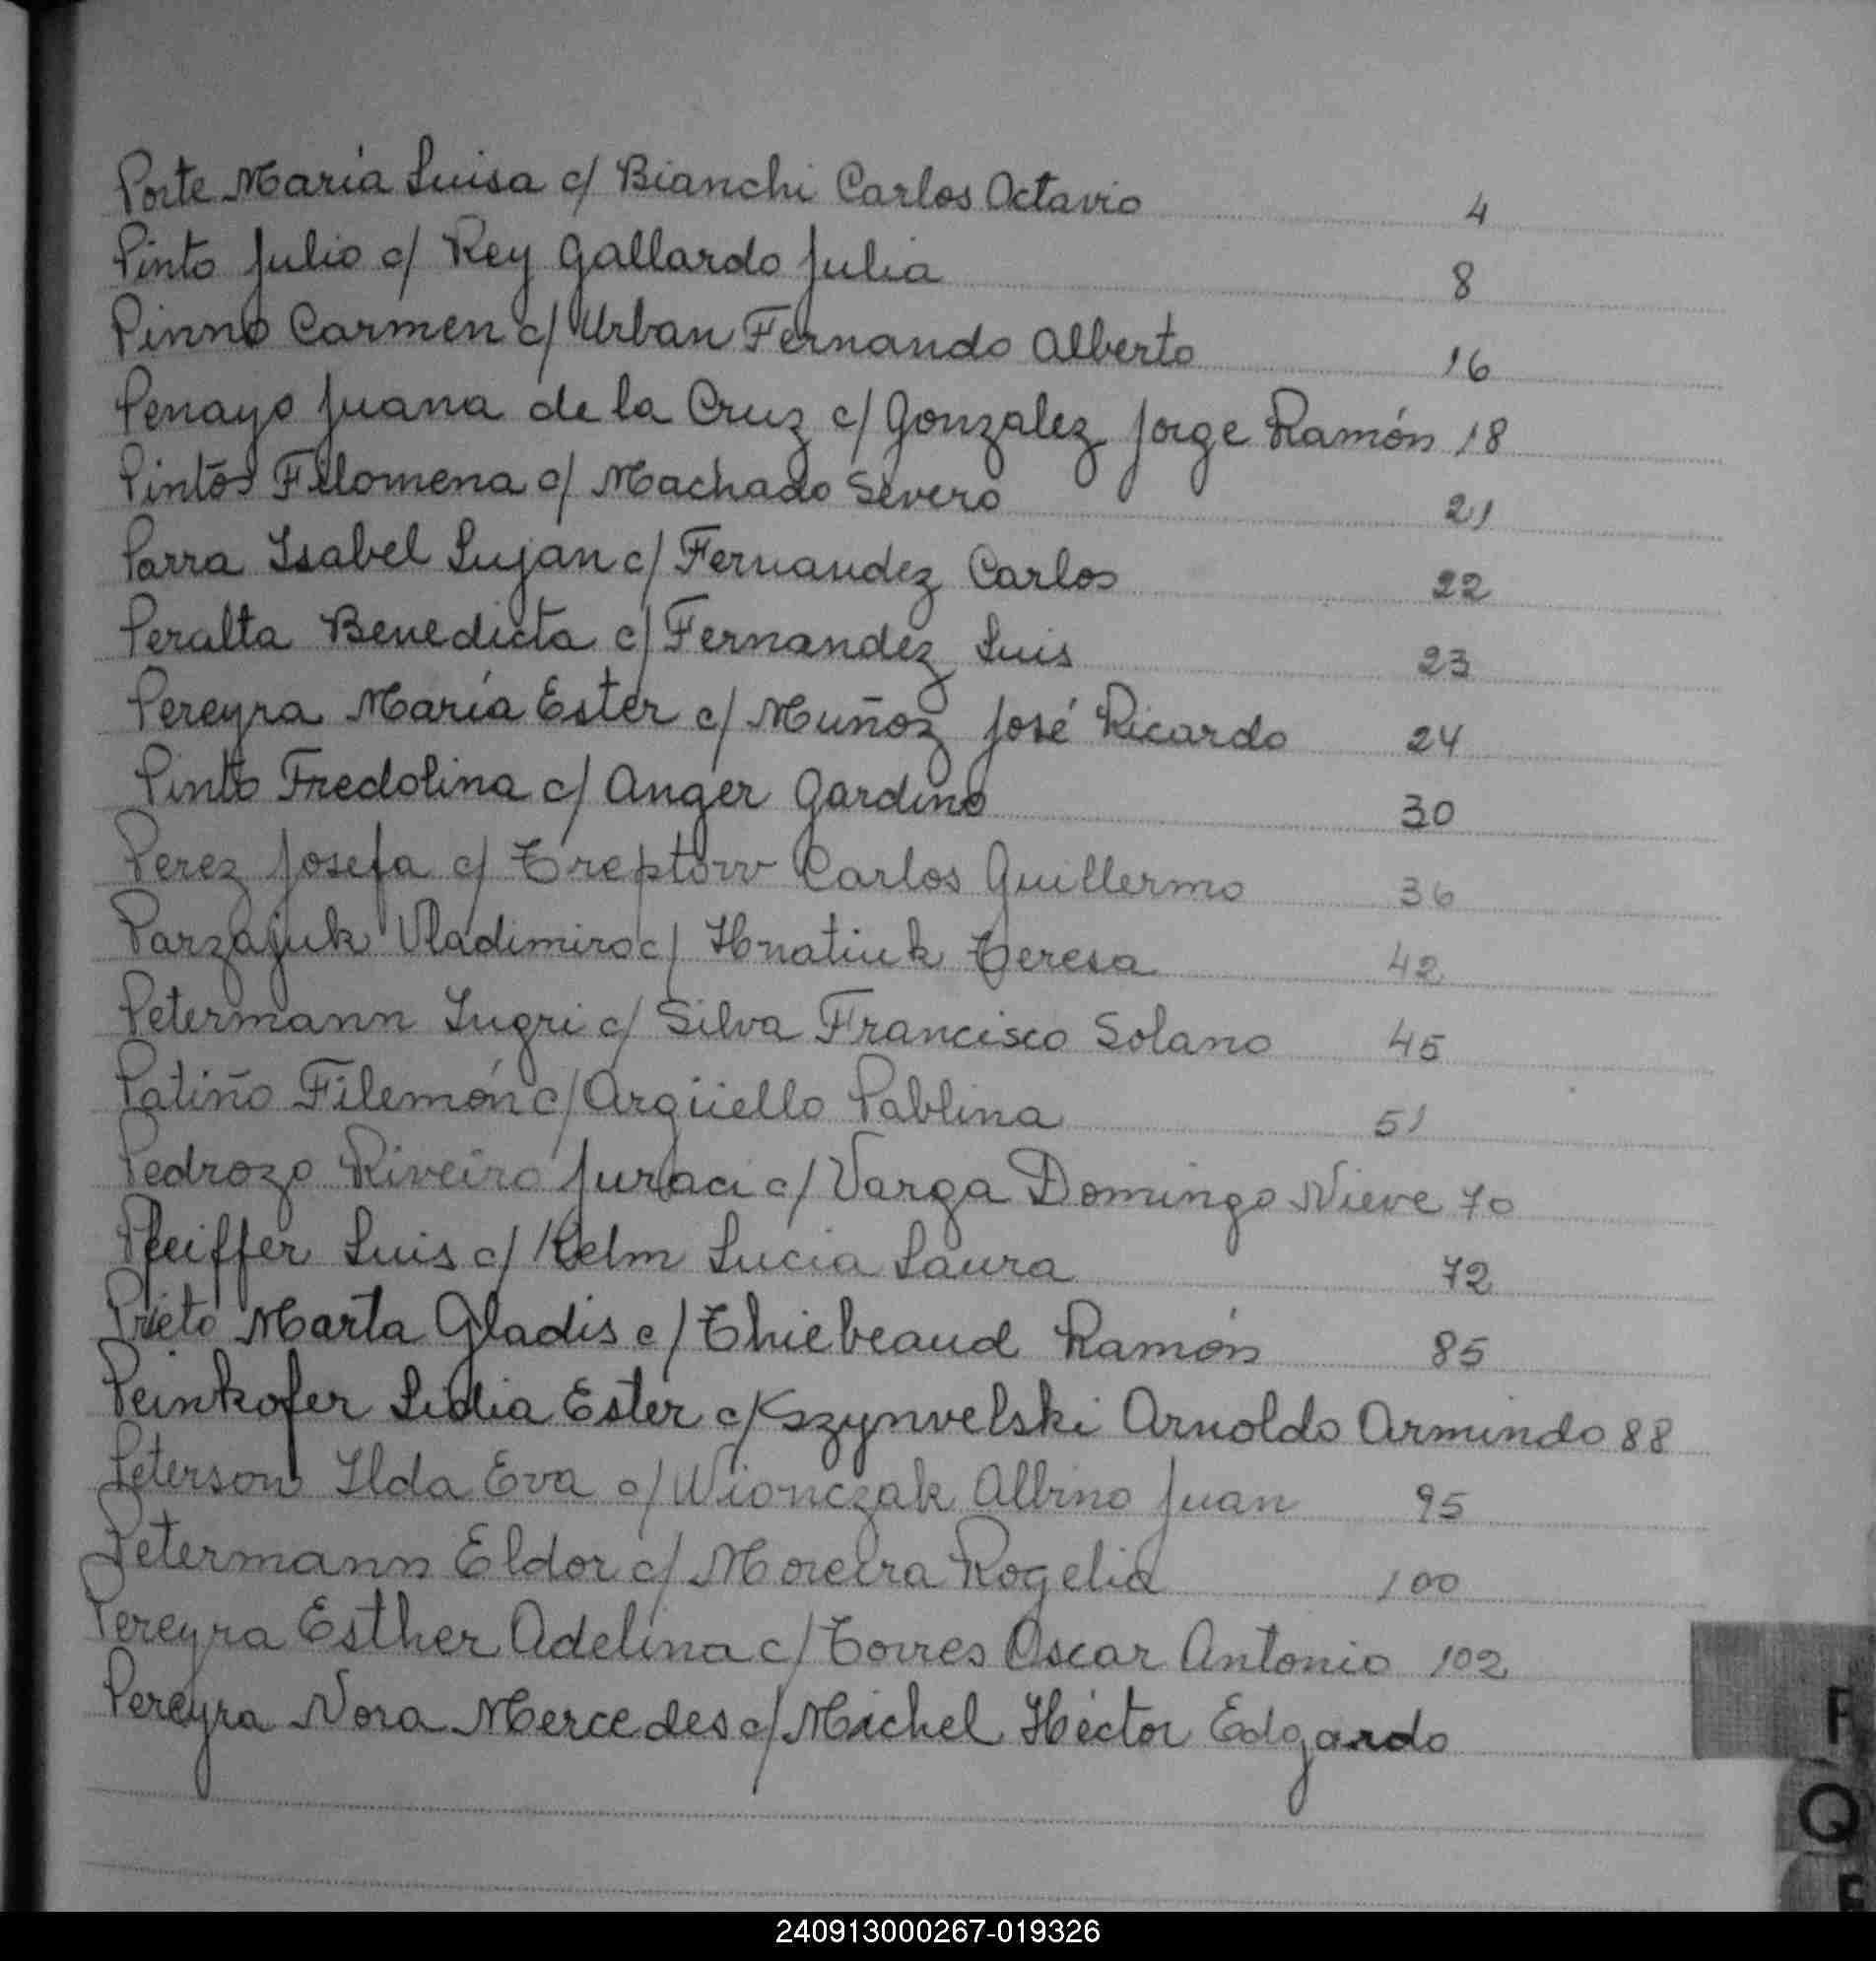 Porte María Luisa c/ Bianchi Carlos Octavio 4
Pinto Julio c/ Rey Gallardo Julia 8
Pinno Carmen c/ Urban Fernando Alberto 16
Penayo Juana de la Cruz c/ Gonzalez Jorge Ramón 18
Pintos Filomena c/ Machado Severo 21
Parra Isabel Lujan c/ Fernandez Carlos 22
Peralta Benedicta c/ Fernandez Luis 23
Pereyra María Ester c/ Muñoz José Ricardo 24
Pinto Fredolina c/ Anger Gardino 30
Perez Josefa c/ Treptow Carlos Guillermo 36
Parzajuk Vladimiro c/ Hnatiuk Teresa 42
Petermann Ingri c/ Silva Francisco Solano 45
Patiño Filemón c/ Argüello Pablina 51
Pedrozo Riveiro Juraci c/ Varga Domingo Nieve 70
Pfeiffer Luis c/ Kelm Lucia Laura 72
Prieto Marta Gladis c/ Thiebeaud Ramón 85
Peinkofer Lidia Ester c/ Kszynvelski Arnoldo Armindo 88
Peterson Ilda Eva c/ Wionczak Albino Juan 95
Petermann Eldor c/ Moreira Rogelia 100
Pereyra Esther Adelina c/ Torres Oscar Antonio 102
Pereyra Nora Mercedes c/ Michel Héctor Edgardo
P
Q
240913000267-019326